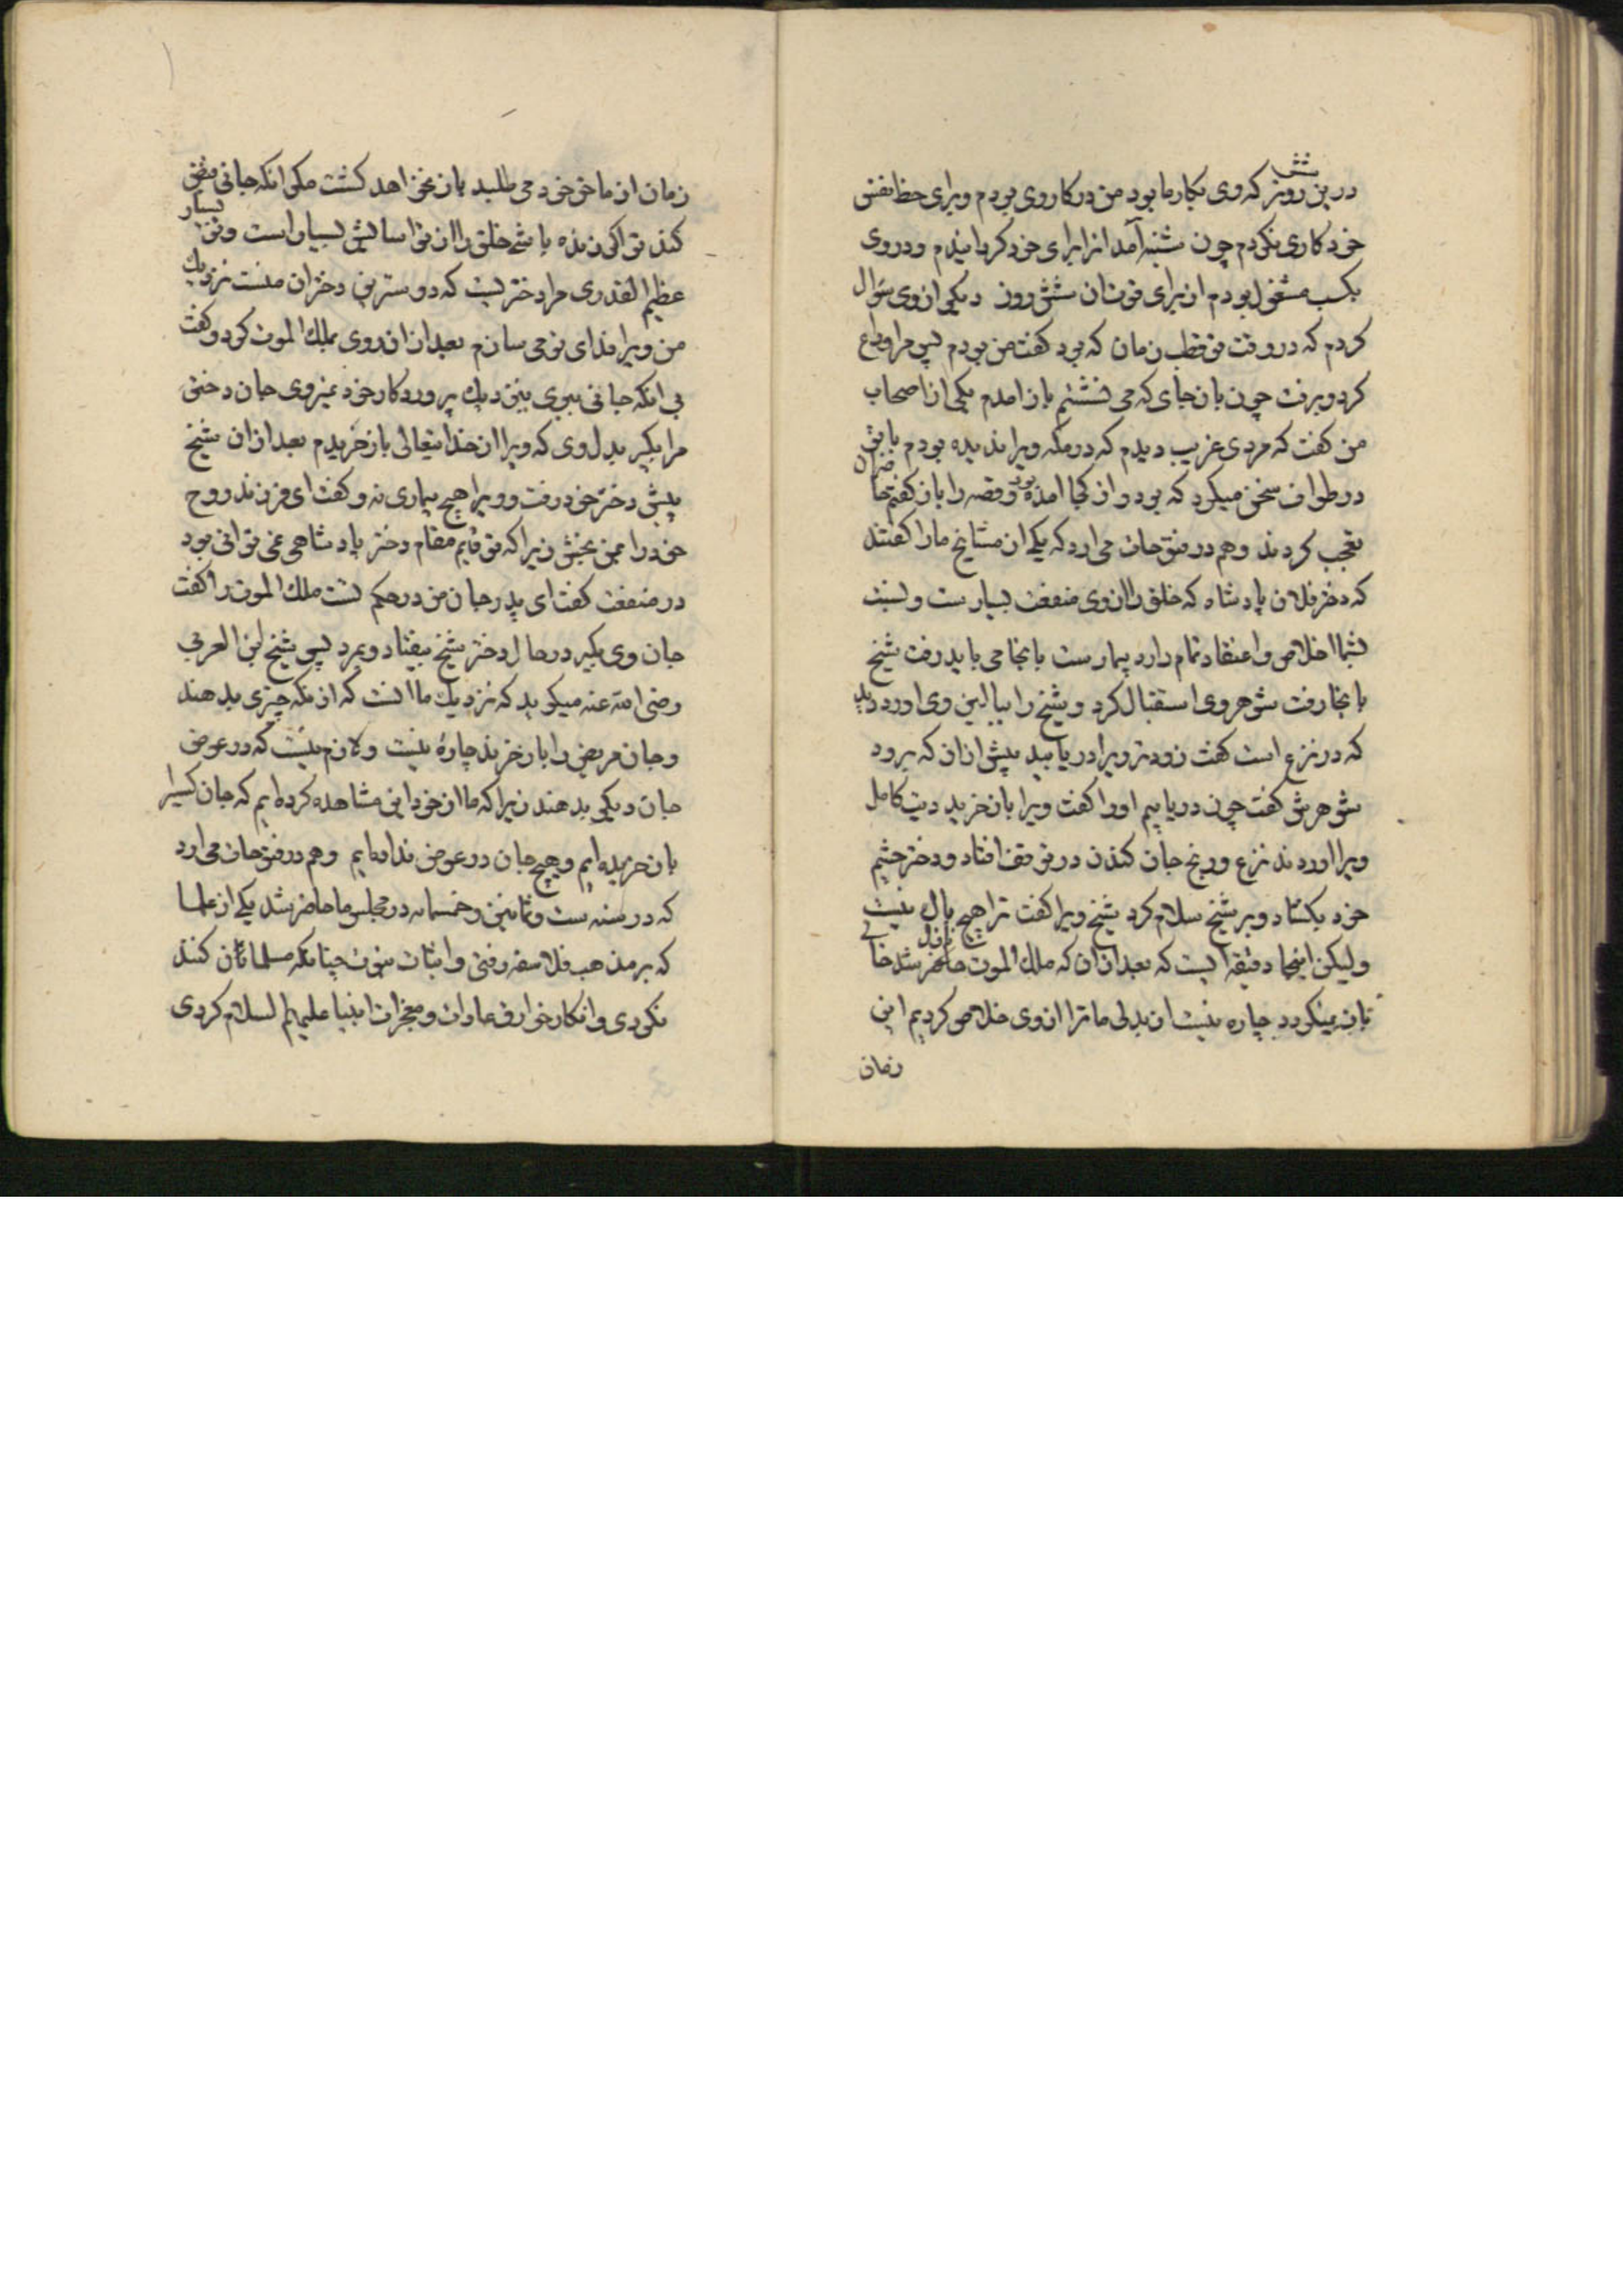 درین شش روز که وی بکار ما بود من در کار وی بودم و برای حظ نفس
خود کاری نکردم چون شنبه آمد انرا برای خود کردانیدم و در وی
بکسب مشغول بودم از برای قوت ان شش روز دیکر از وی سؤال
کردم که در وقت تو قطب زمان که بود کفت من بودم پس مرا وداع
کرد و برفت چون بان جای که می نشستم باز امدم یکی از اصحاب
من کفت که مردی غریب دیدم که در مکه ویرا ندیده بودم با تو
در طواف سخن میکرد که بود و از کجا امده بود و قصه را باز کفتم حاضران
تعجب کردند و هم در فتوحات می ارد که یکی از مشایخ ما را کفتند
که دختر فلان پادشاه که خلق را از وی منفعت بسیارست و نسبت
بشما اخلاص و اعتقاد تمام دارد بیمارست بانجا می باید رفت شیخ
بانجا رفت شوهر وی استقبال کرد و شیخ را ببالین وی اورد دید
که در نزع است کفت زودتر ویرا دریابید پیش از ان که برود
شوهرش کفت چون دریابیم او را کفت ویرا بازخرید دیت کامل
ویرا اوردند نزع و رنج جان کندن در توقف افتاد و دختر چشم
خود بکشاد و بر شیخ سلام کرد شیخ ویرا کفت ترا هیچ باک نیست
ولیکن اینجا دقیقه ایست که بعد از ان که ملک الموت حاضر شد خالی
باز نمیکردد چاره نیست از بدلی ما ترا از وی خلاص کردیم این
زمان
زمان از ما حق خود می طلبد باز نخواهد کشت مکر انکه جانی قبض
کند تو اکر زنده باشی خلق را از تو اسایش بسیار است و تو بسیار
عظیم القدری مرا دختریست که دوسترین دختران منست نزدیک
من ویرا فدای تو می سازم بعد از ان روی بملک الموت کرد و کفت
بی انکه جانی ببری بنزدیک پروردکار خود نمیروی جان دختر
مرا بکیر بدل وی که ویرا از خدایتعالی بازخریدم بعد از ان شیخ
پیش دختر خود رفت و ویرا هیچ بیماری نه و کفت ای فرزند روح
خود را بمن بخش زیرا که تو قایم مقام دختر پادشاهی نمی توانی بود
در منفعت کفت ای پدر جان من در حکم تست ملک الموت را کفت
جان وی بکیر در حال دختر شیخ بیفتاد و بمرد پس شیخ ابن العربی
رضی الله عنه میکوید که نزدیک ما انست که از انکه چیزی بدهند
و جان مریض را باز خرند چارهٔ نیست و لازم نیست که در عوض
جان دیکری بدهند زیرا که ما از خود این مشاهده کرده ایم که جان کسیرا
باز خریده ایم و هیچ جان در عوض نداده ایم و هم در فتوحات می ارد
که در سنه ست و ثمانین و خمسمائه در مجلس ما حاضر شد یکی از علما
که بر مذهب فلاسفه رفتی و اثبات نبوت چنانکه مسلمانان کنند
نکردی و انکار خوارق عادات و معجزات انبیا علیهم السلام کردی